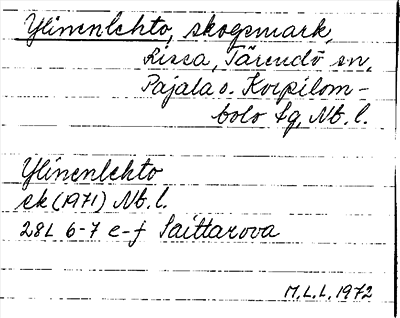 Ylinenlehto, skogsmark,
Lissa, Tärendö sn,
Pajala o. Korpilom-
bolo tg, Nb. l.
Ylinenlehto
ek (1971) Nb. l.
28L 6-7 e-f Saittarova
M.L.L. 1972